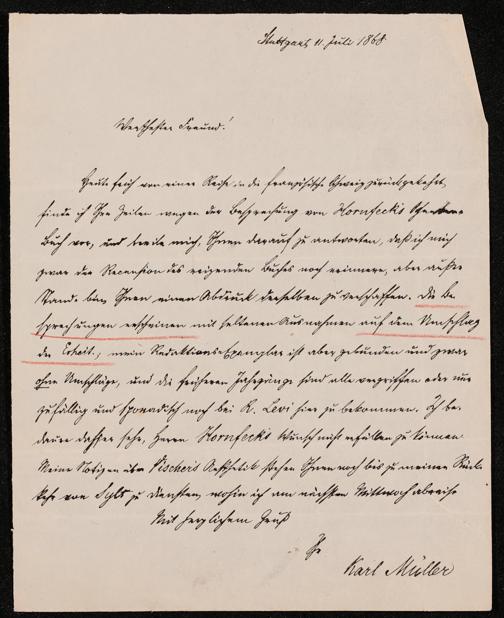 Stuttgart, 11. Juli 1868
Werthester Freund!
Heute früh von einer Reise in die französische Schweiz zurückgekehrt,
finde ich Ihre Zeilen wegen der Besprechung von Hornfecks
Buch vor, und beeile mich, Ihnen darauf zu antworten, daß ich mich
zwar der Recension des reizenden Buchs noch erinnere, aber außer
Stande bin, Ihnen einen Abdruck derselben zu verschaffen. Die Be
sprechungen erscheinen mit seltenen Ausnahmen auf dem Umschlag
der mein Redaktionsexemplar ist aber gebunden und zwar
ohne Umschläge, und die früheren Jahrgänge sind alle vergriffen oder nur
zufällig und sporadisch noch bei R. Levi hier zu bekommen. Ich be
daure daher sehr, Herrn Hornfecks Wunsch nicht erfüllen zu können.
Meine Notizen über Vischers Aesthetik stehen Ihnen noch bis zu meiner Rück
kehr von Sylt zu Diensten, wohin ich am nächsten Mittwoch abreise.
Mit herzlichem Gruß
Ihr
Karl Müller